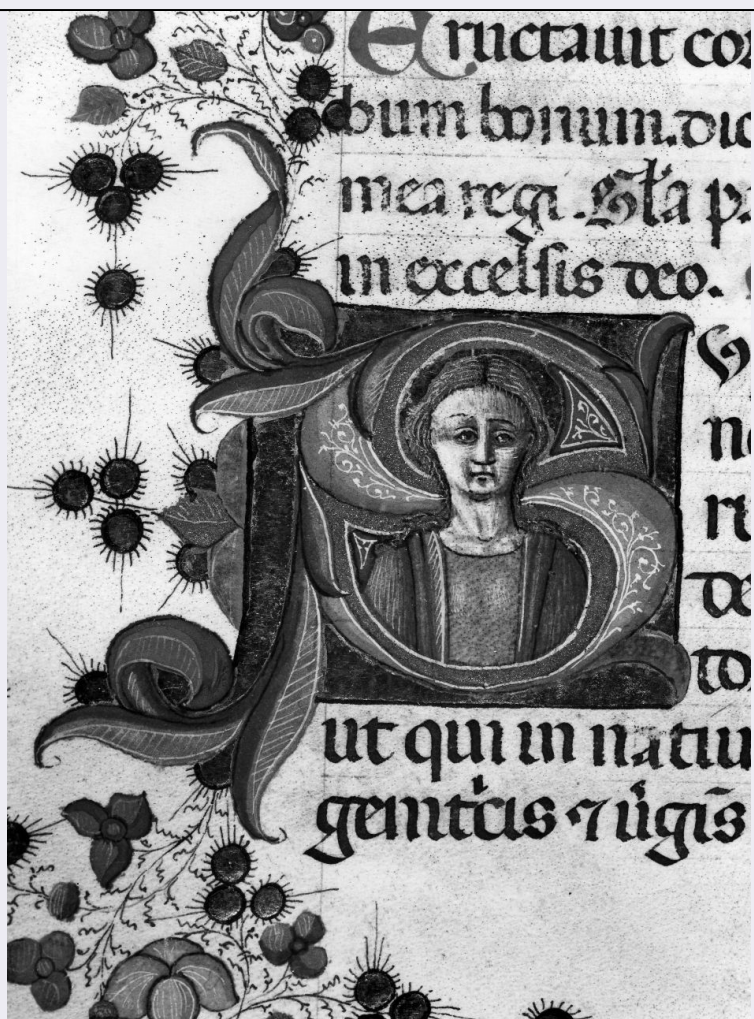 Eructauit cor
bum bonum. dic
mea regi. Gl̄a pa
in excelsis deo.
S
ru
de
to
ut qui in natiu
genitͬcis ⁊ uͥgis̄